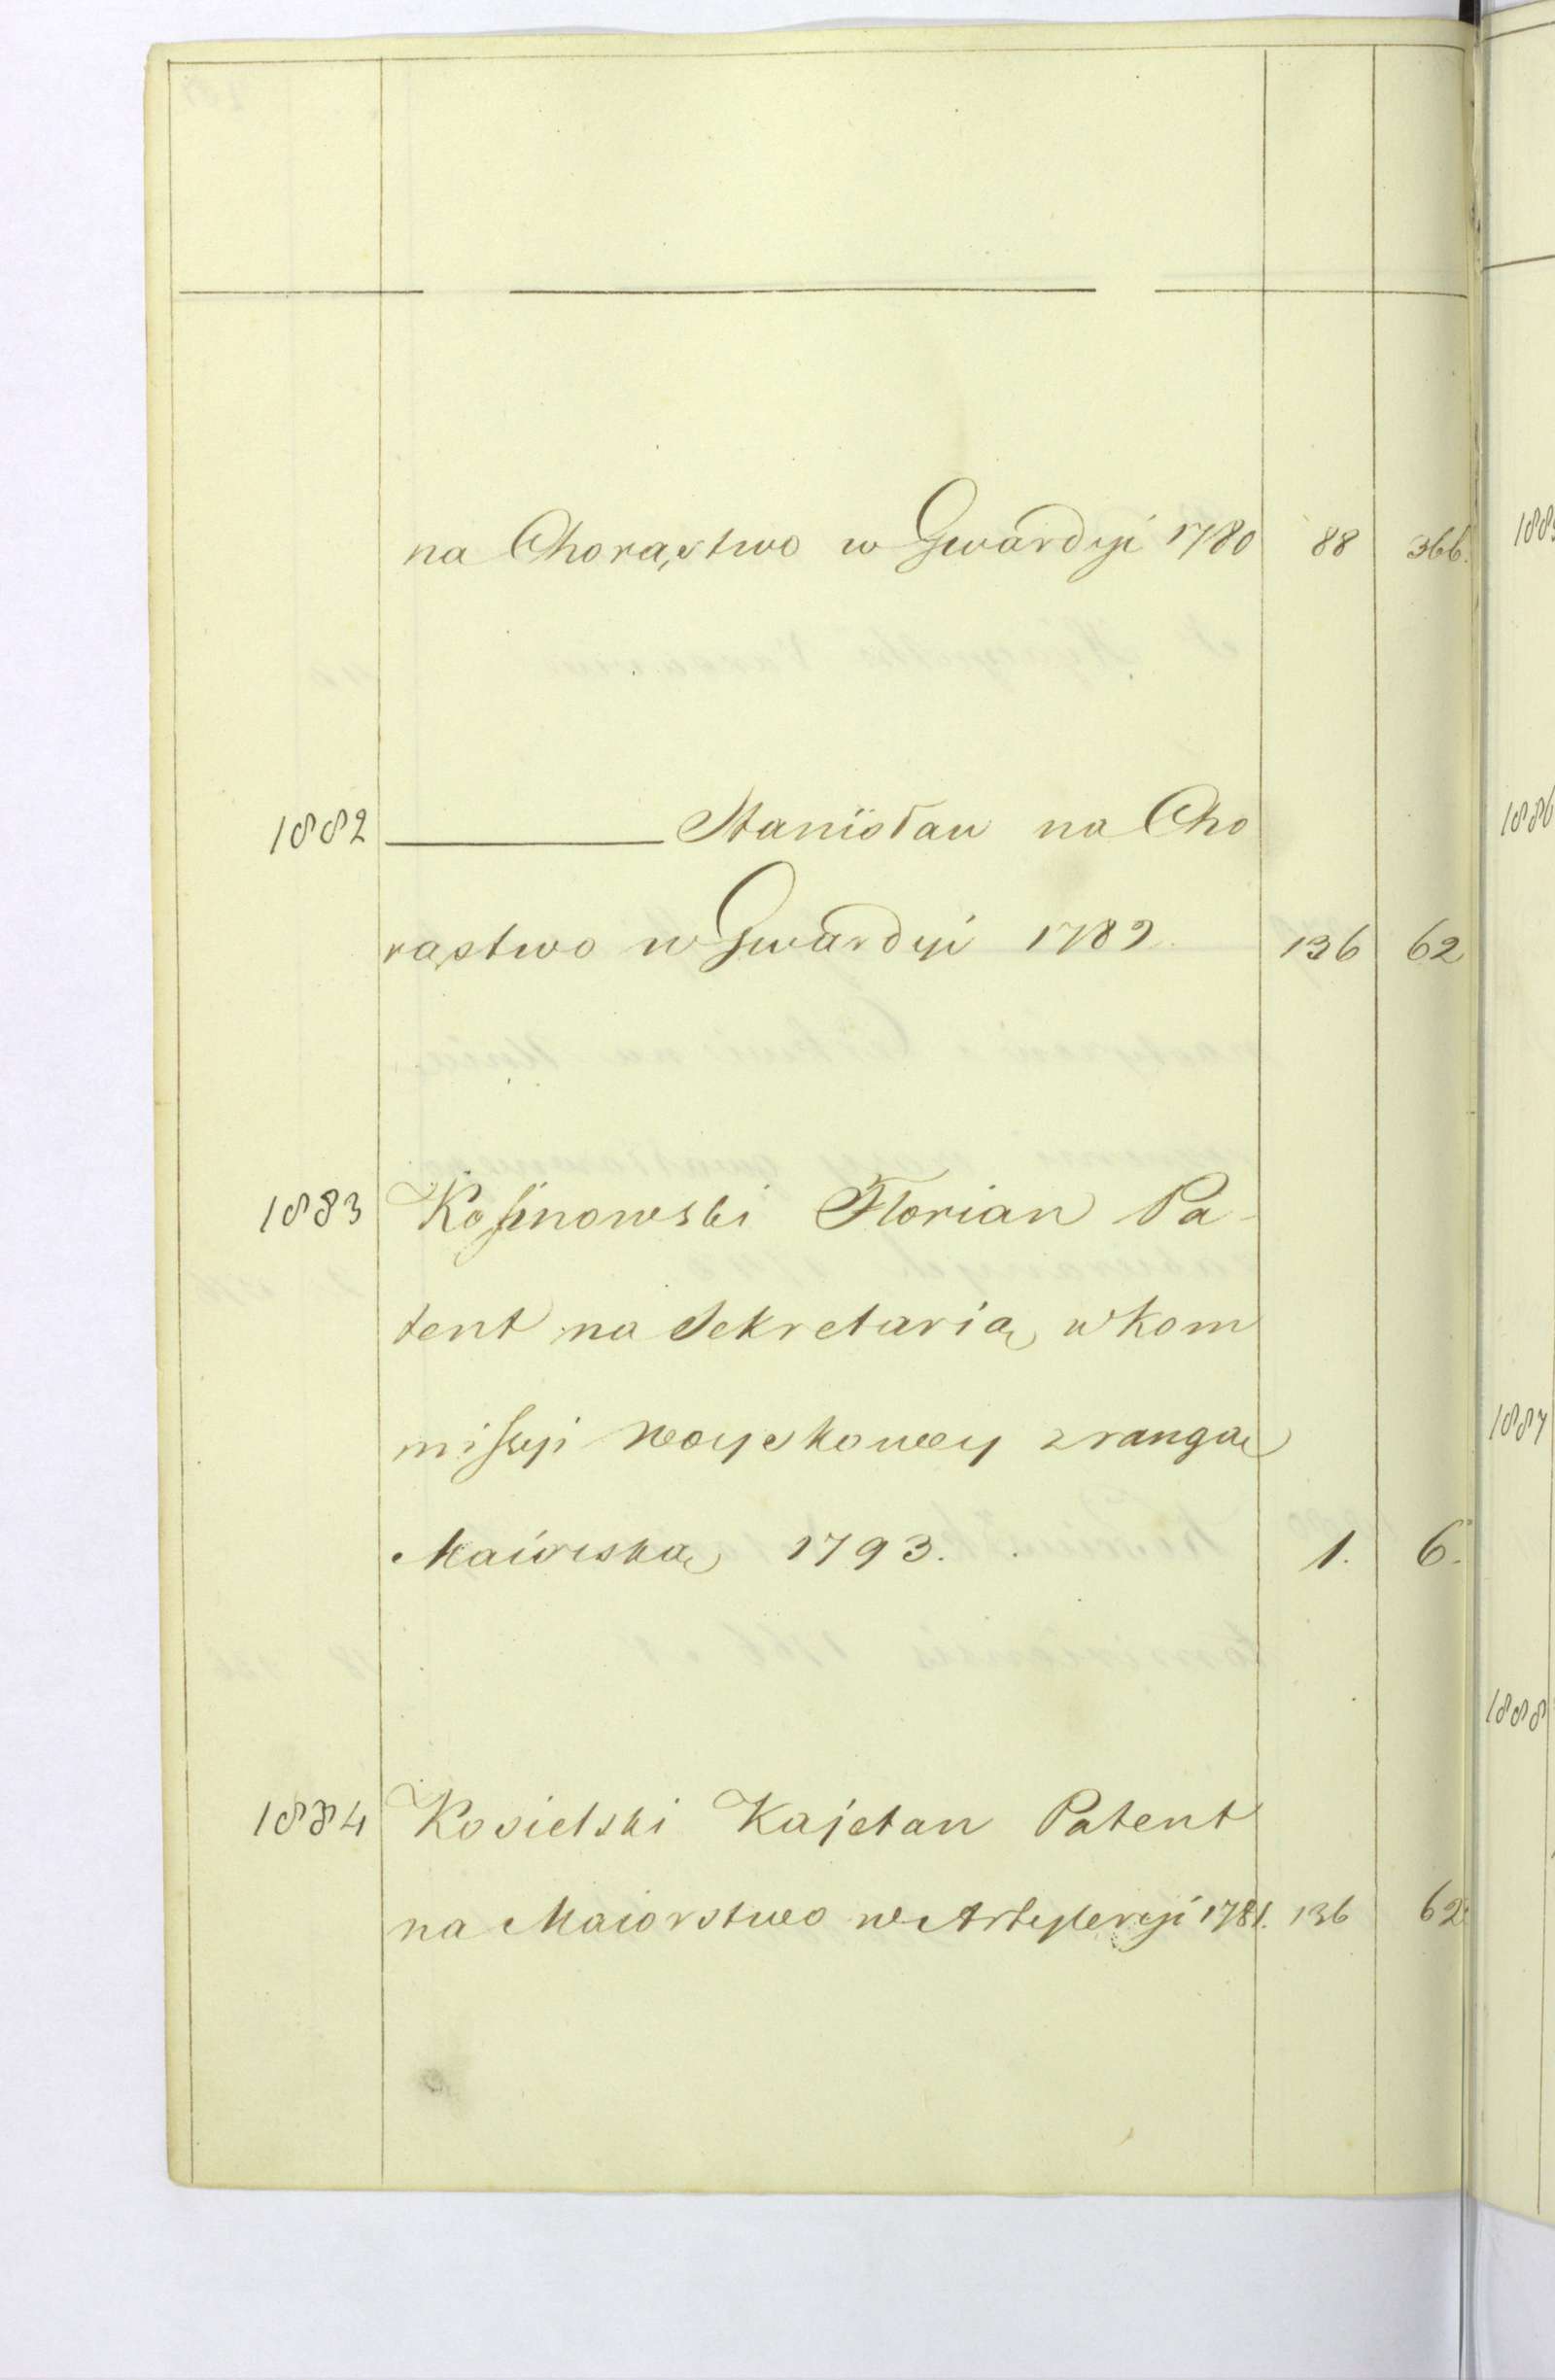 na Chorąstwo w Gwardyi 1780 88 366.
1882 Stanisław na Cho
rąstwo w Gwardyi 1789. 136 62
1883 Kossinowski Florian Pa-
tent na Sekretarią w Kom
missyi Woyskowey z rangą
Maiorską 1793. 1. 6.
1884 Kosielski Kajetan Patent
na Maiorstwo w Artyleryi 1781. 136 62.
1886
1887
1888